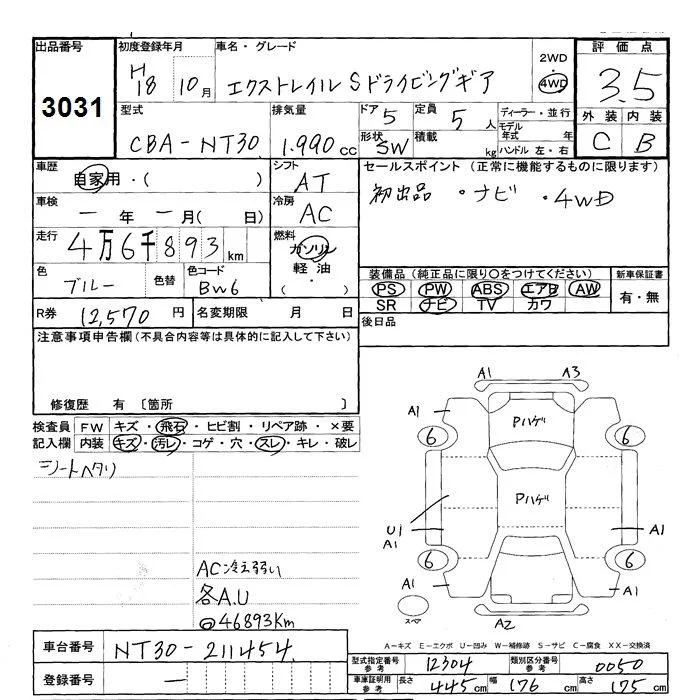 出品番号 初度登録年月 車名・グレード 2WD 評価点
3031 H18 10月 エクストレイル Sドライビングギア 4WD 3.5
型式 排気量 ドア 5 定員 5人 ディーラー・並行 外装 内装
CBA-NT30 1.990cc 形状 SW 積載 kg モデル年式 年 ハンドル 左・右 C B
車歴 自家用・( ) シフト AT セールスポイント (正常に機能するものに限ります)
車検 一年 一月( 日) 冷房 AC 初出品 ・ナビ ・4WD
走行 4万6千893km 燃料 ガソリン 軽油 ・( )
色 ブルー 色替 色コード BW6 装備品 (純正品に限り○をつけてください) 新車保証書
PS PW ABS エアB AW 有・無
SR ナビ TV カワ
R券 12,570円 名変期限 月 日 後日品
注意事項申告欄(不具合内容等は具体的に記入して下さい)
修復歴 有 〔箇所 〕
検査員 FW キズ・飛石・ヒビ割・リペア跡・×要
記入欄 内装 キズ・汚レ・コゲ・穴・スレ・キレ・破レ
シートヘタリ
AC冷え弱い
各A.U
@46893Km
A1 A3
A1 Pハゲ
6 6
Pハゲ
U1 A1
A1
6 6
A1 A1
スペア A2
A-キズ E-エクボ U-凹み W-補修跡 S-サビ C-腐食 XX-交換済
車台番号 NT30-211454
型式指定番号 参考 12304 類別区分番号 参考 0050
登録番号 一
車庫証明用 参考 長さ 445cm 幅 176cm 高さ 175cm